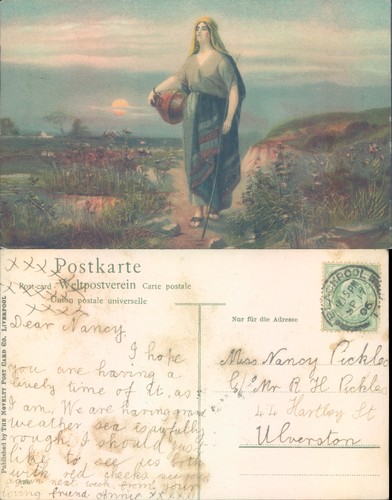 Postkarte
Post-card Weltpostverein Carte postale
Union postale universelle
Nur für die Adresse
Published by THE NOVELTY POST CARD Co. LIVERPOOL
BLACKPOOL
SP
06
Dear Nancy.
I hope
you are having a
lovely time of it, as
I am. We are having grand
weather sea is awfully
rough. I should just
like to see us both
with red cheeks see you
again next week. from your
loving friend Annie xxxxx
Miss Nancy Pickles
C/o Mr R H Pickles
44 Hartley St
Ulverston